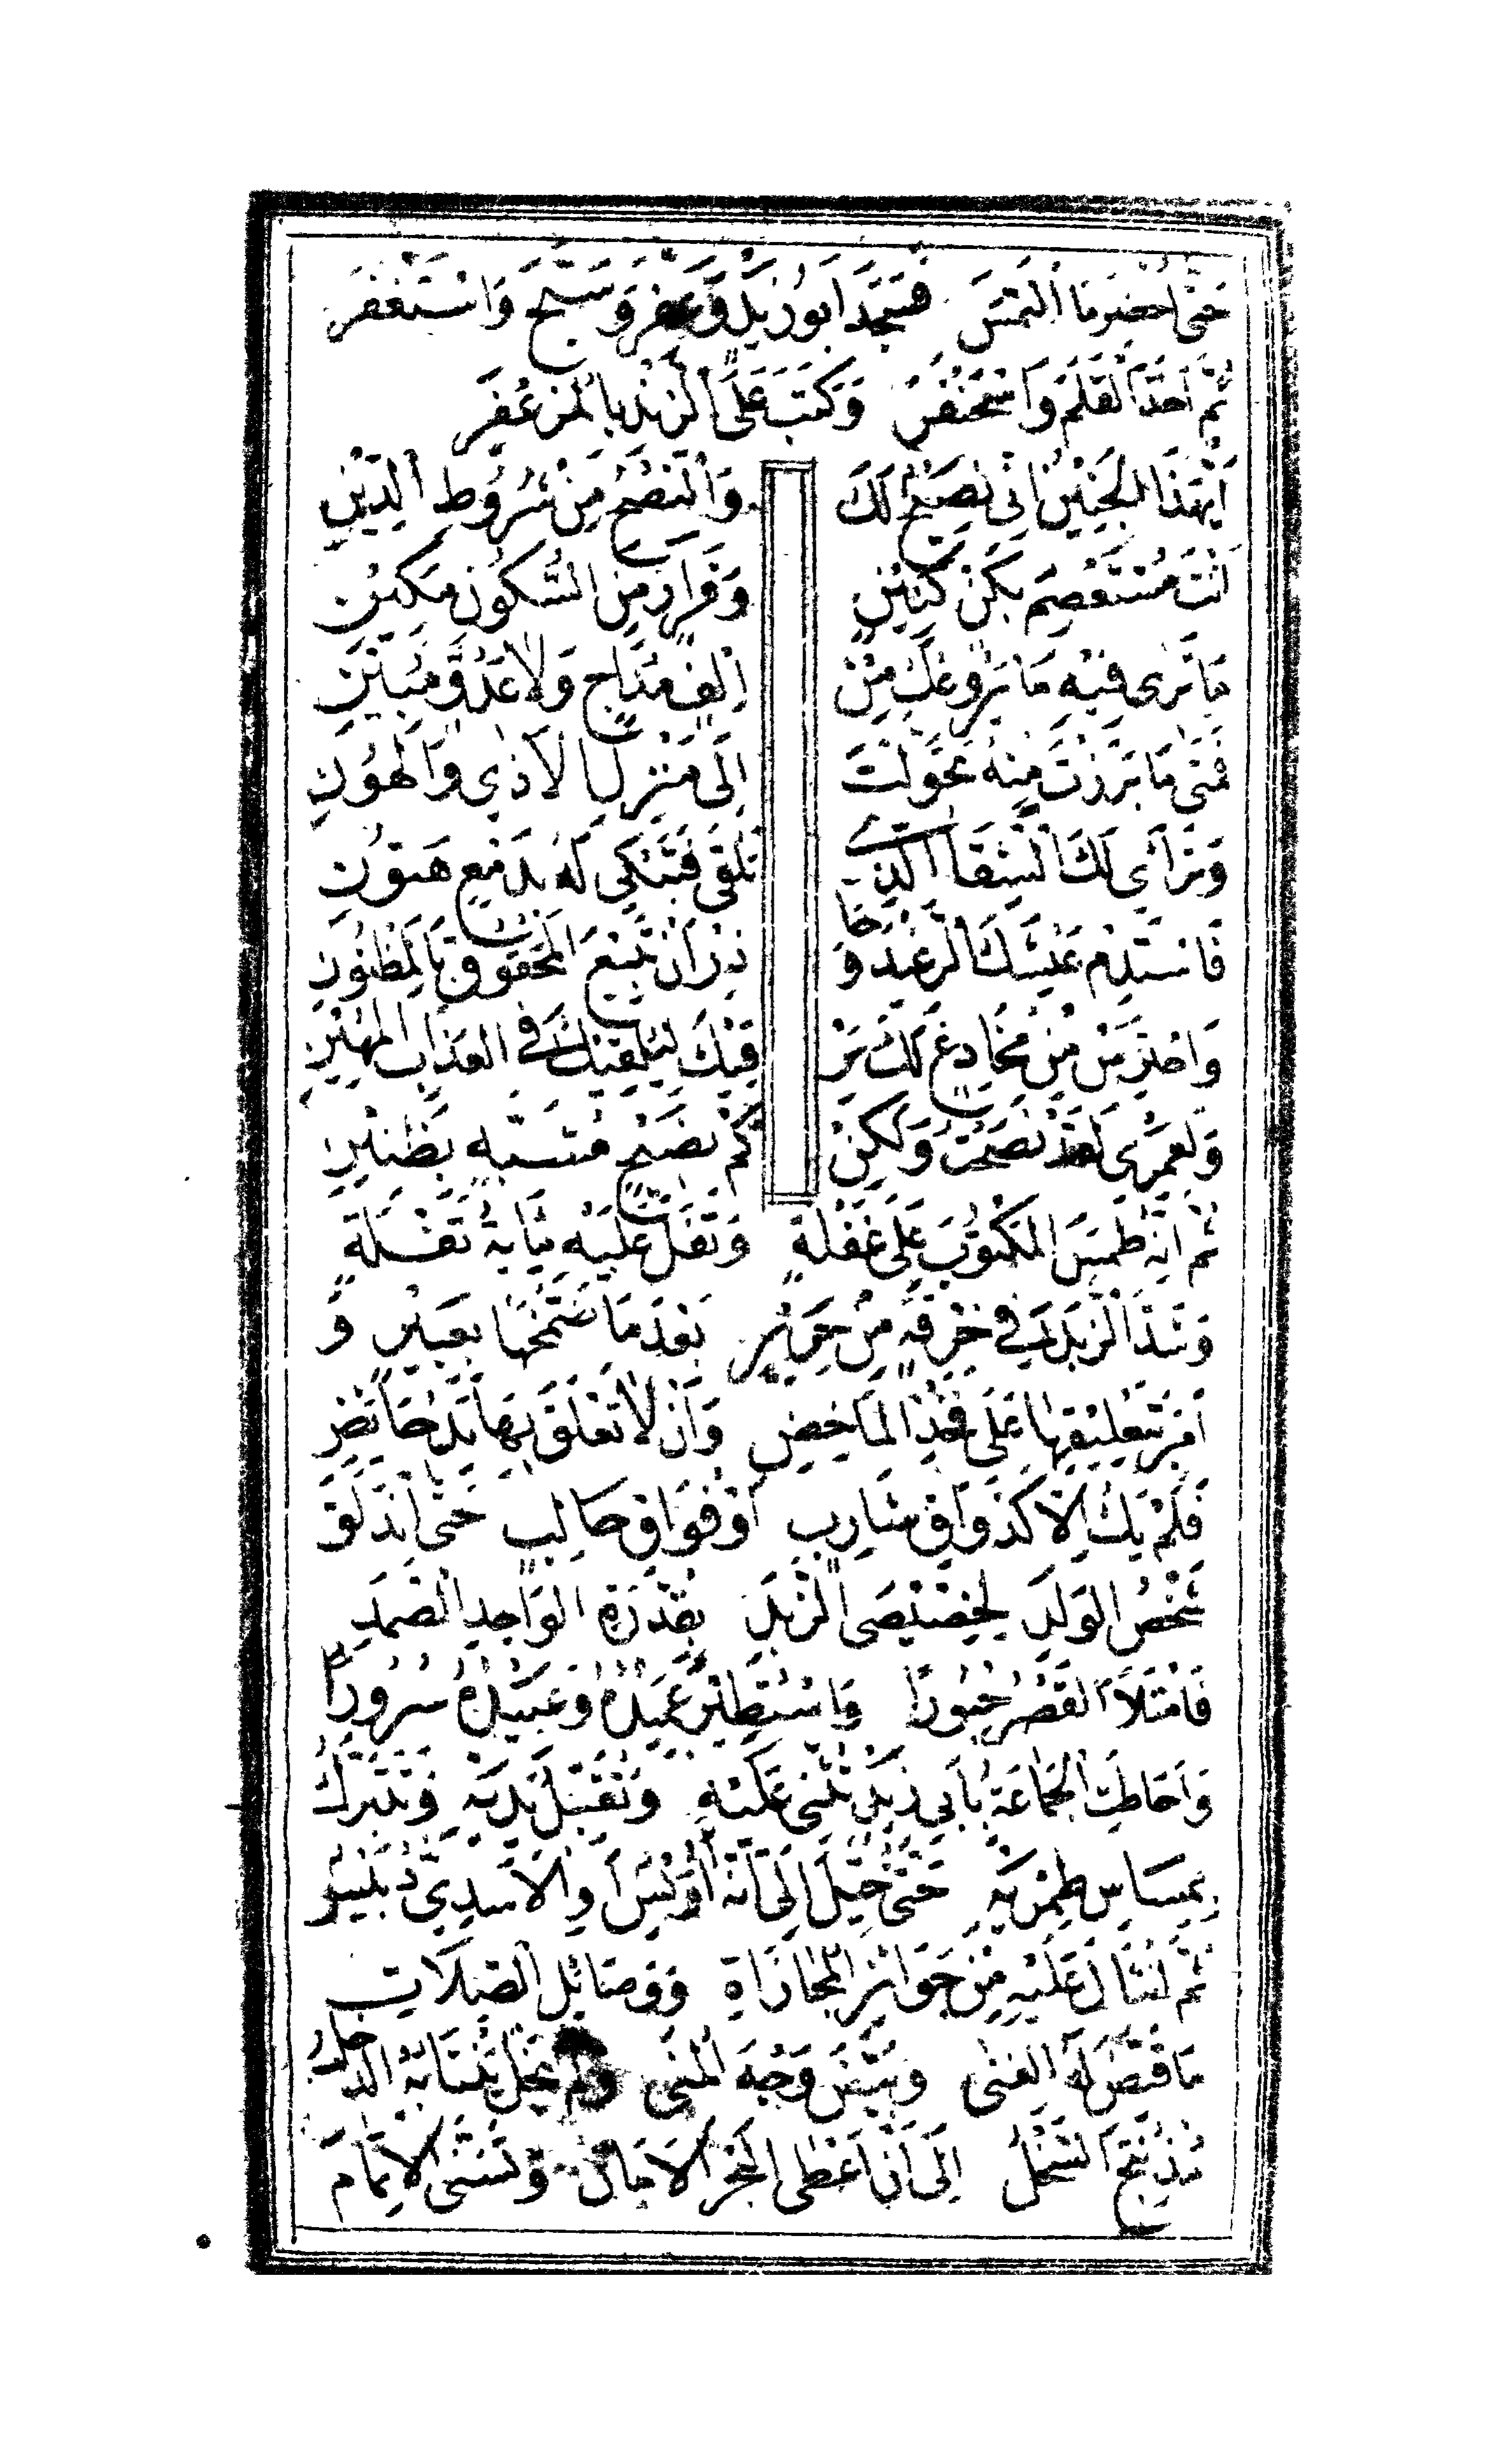 حَتَّى اُحْضِرَ مَا الْتَمَسَ فَسَجَدَ اَبُو زَيْدٍ وَعَفَّرَ وَسَبَّحَ وَاسْتَغْفَرَ
ثُمَّ اَخَذَ الْقَلَمَ وَاسْحَنْفَرَ وَكَتَبَ عَلَى الزَّبَدِ بِالْمُزَعْفَرِ
اَيُّهَذَا الْجَنِيْنُ اِنِّي نَصِيْحٌ لَكَ وَالنُّصْحُ مِنْ شُرُوطِ الدِّيْنِ
اَنْتَ مُسْتَعْصِمٌ بِكِنٍّ كَنِيْنٍ وَقَرَارٍ مِنَ السُّكُونِ مَكِيْنِ
مَا تَرَى فِيْهِ مَا يَرُوعُكَ مِنْ اِلْفٍ مُدَاجٍ وَلَا عَدُوٍّ مُبِيْنِ
فَمَتَى مَا بَرَزْتَ مِنْهُ تَحَوَّلْتَ اِلَى مَنْزِلِ الْاَذٰى وَالْهُوْنِ
وَتَرَاأَى لَكَ الشَّقَا الَّذِي تَلْقٰى فَتَبْكِي لَهُ بِدَمْعٍ هَتُوْنِ
فَاسْتَدِمْ عَيْشَكَ الرَّغِيْدَ وَحَا ذِرْ اَنْ تَبِيْعَ الْمَحْقُوقَ بِالْمَظْنُونِ
وَاحْتَرِسْ مِنْ مُخَادِعٍ لَكَ يَرْ قِيْكَ لِيُلْقِيْكَ فِي الْعَذَابِ الْمُهِيْنِ
وَلَعَمْرِى لَقَدْ نَصَحْتُ وَلٰكِنْ كَمْ نَصِيْحٍ مُشَبَّهٍ بِظَنِيْنِ
ثُمَّ اِنَّهُ طَمَسَ الْمَكْتُوْبَ عَلَى غَفْلَةٍ وَتَفَلَ عَلَيْهِ مِائَةَ تَفْلَةٍ
وَشَدَّ الزَّبَدَ فِي خِرْقَةٍ مِنْ حَرِيْرٍ بَعْدَ مَا ضَمَّخَهَا بِعَبِيْرٍ وَ
اَمَرَ بِتَعْلِيْقِهَا عَلَى فَخِذِ الْمَاخِضِ وَاَنْ لَا تَعْلَقَ بِهَا يَدُ حَائِضٍ
فَلَمْ يَكُ اِلَّا كَذَوَاقِ شَارِبٍ اَوْ فُوَاقِ حَالِبٍ حَتَّى انْدَلَقَ
شَخْصُ الْوَلَدِ لِخِصِّيْصَى الزَّبَدِ بِقُدْرَةِ الْوَاحِدِ الصَّمَدِ
فَامْتَلَاَ الْقَصْرُ حُبُوْرًا وَاسْتُطِيْرَ عَمِيْدُهُ وَعَبِيْدُهُ سُرُوْرًا
وَاَحَاطَتِ الْجَمَاعَةُ بِاَبِي زَيْدٍ تُثْنِي عَلَيْهِ وَتُقَبِّلُ يَدَيْهِ وَتَتَبَرَّكُ
بِمِسَاسِ طِمْرَيْهِ حَتَّى خُيِّلَ اِلَيَّ اَنَّهُ اُوَيْسٌ اَوِ الْاَسَدِيُّ دُبَيْسٌ
ثُمَّ انْثَالَ عَلَيْهِ مِنْ جَوَائِزِ الْمُجَازَاةِ وَوَصَائِلِ الصِّلَاتِ
مَا قَيَّضَ لَهُ الْغِنٰى وَبَيَّضَ وَجْهَ الْمُنٰى وَلَمْ يَنْتَابُهُ الدَّخْلُ
مُذْ نُتِجَ السَّخْلُ اِلَى اَنْ اُعْطِيَ الْبَحْرُ الْاَمَانَ وَتَسَنَّى الْاِتْمَامُ